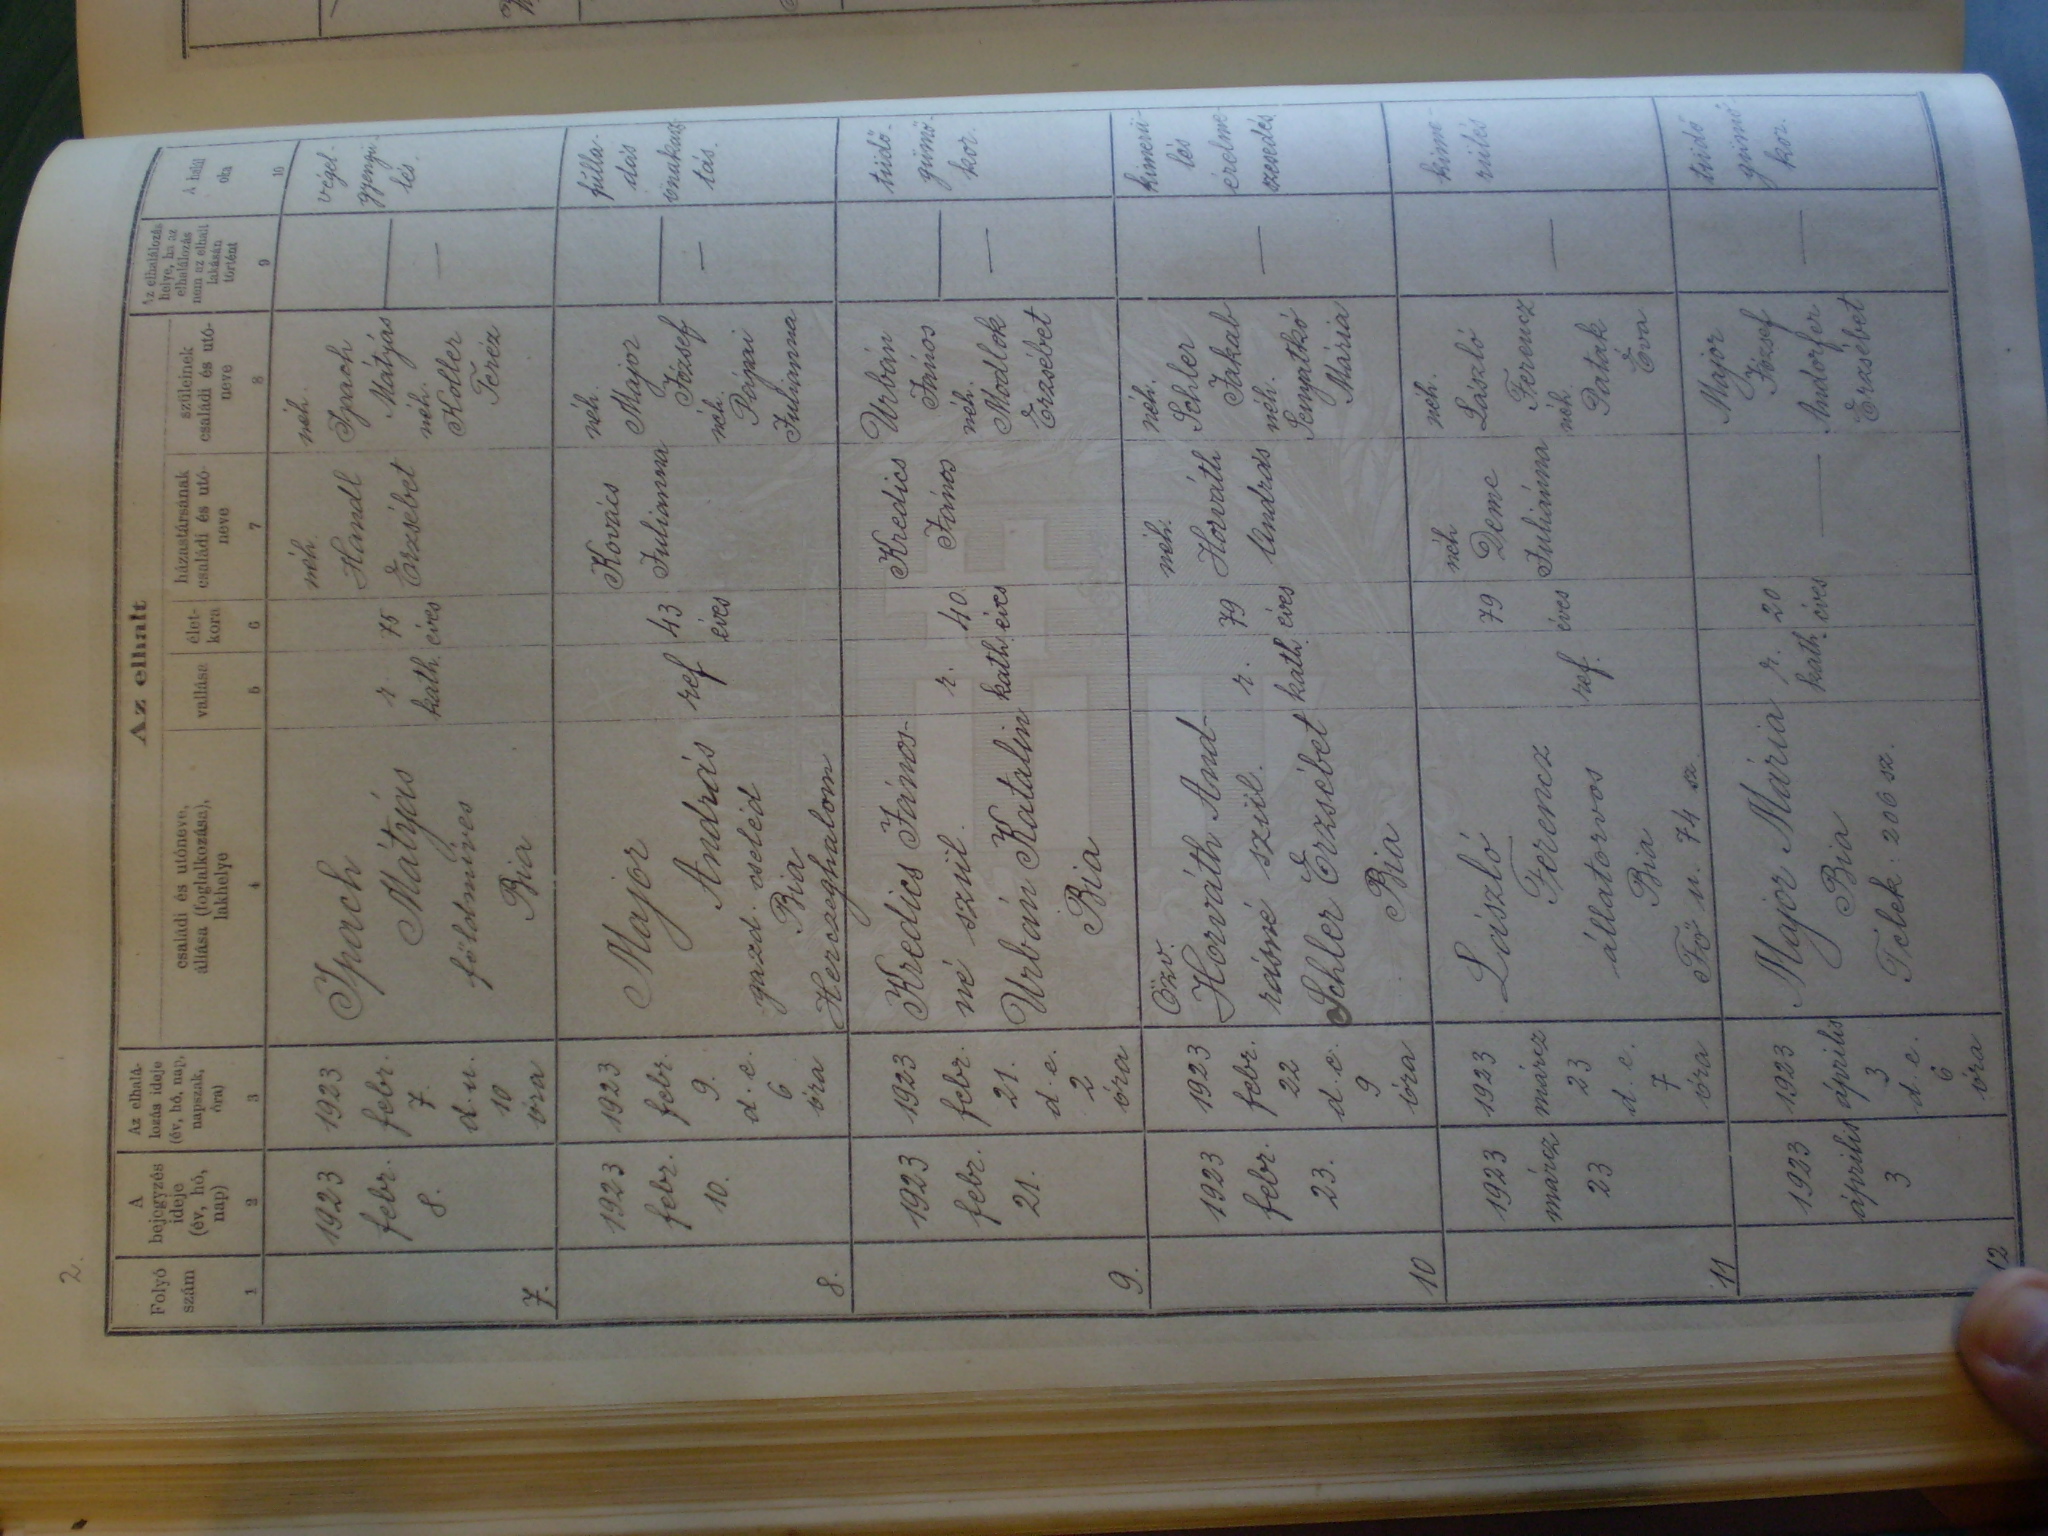 2.
Az elhalt
Folyó
szám
A
bejegyzés
ideje
(év, hó,
nap)
Az elhalá-
lozás ideje
(év, hó, nap,
napszak,
óra)
családi és utóneve,
állása (foglalkozása),
lakhelye
vallása
élet-
kora
házastársának
családi és utó-
neve
szüleinek
családi és utó-
neve
Az elhalálozás
helye, ha az
elhalálozás
nem az elhalt
lakásán
történt
A halál
oka
1
2
3
4
5
6
7
8
9
10
7.
1923
febr.
8.
1923
febr.
7.
d. u.
10
óra
Spach
Mátyás
földmíves
Bia
r.
kath.
75
éves
néh.
Handl
Erzsébet
néh.
Spach
Mátyás
néh.
Koller
Teréz
—
végel-
gyengü-
lés.
8.
1923
febr.
10.
1923
febr.
9.
d. e.
6
óra
Major
András
gazd. cseléd
Bia
Herczeghalom
ref
43
éves
Kovács
Julianna
néh.
Major
József
néh.
Pápai
Julianna
—
fulla-
dás
önakasz-
tás.
9.
1923
febr.
21.
1923
febr.
21.
d. e.
2
óra
Kredics János-
né szül.
Urbán Katalin
Bia
r.
kath.
40
éves
Kredics
János
Urbán
János
néh.
Modlok
Erzsébet
—
tüdő-
gümő-
kor.
10
1923
febr.
23.
1923
febr.
22
d. e.
9
óra
Özv.
Horváth And-
rásné szül.
Schler Erzsébet
Bia
r.
kath.
79
éves
néh.
Horváth
András
néh.
Schler
Jakab
néh.
Senyatkó
Mária
—
kimerü-
lés
érelme-
szesedés
11
1923
márcz
23
1923
márcz
23
d. e.
7
óra
László
Ferencz
állatorvos
Bia
Fő u. 74 sz
ref.
79
éves
néh
Deme
Juliánna
néh.
László
Ferencz
néh.
Patak
Éva
—
kime-
rülés
12
1923
április
3
1923
április
3
d. e.
6
óra
Major Mária
Bia
Telek. 206 sz.
r.
kath.
20
éves
—
Major
József
Andorfer
Erzsébet
—
tüdő
gümő
kor.